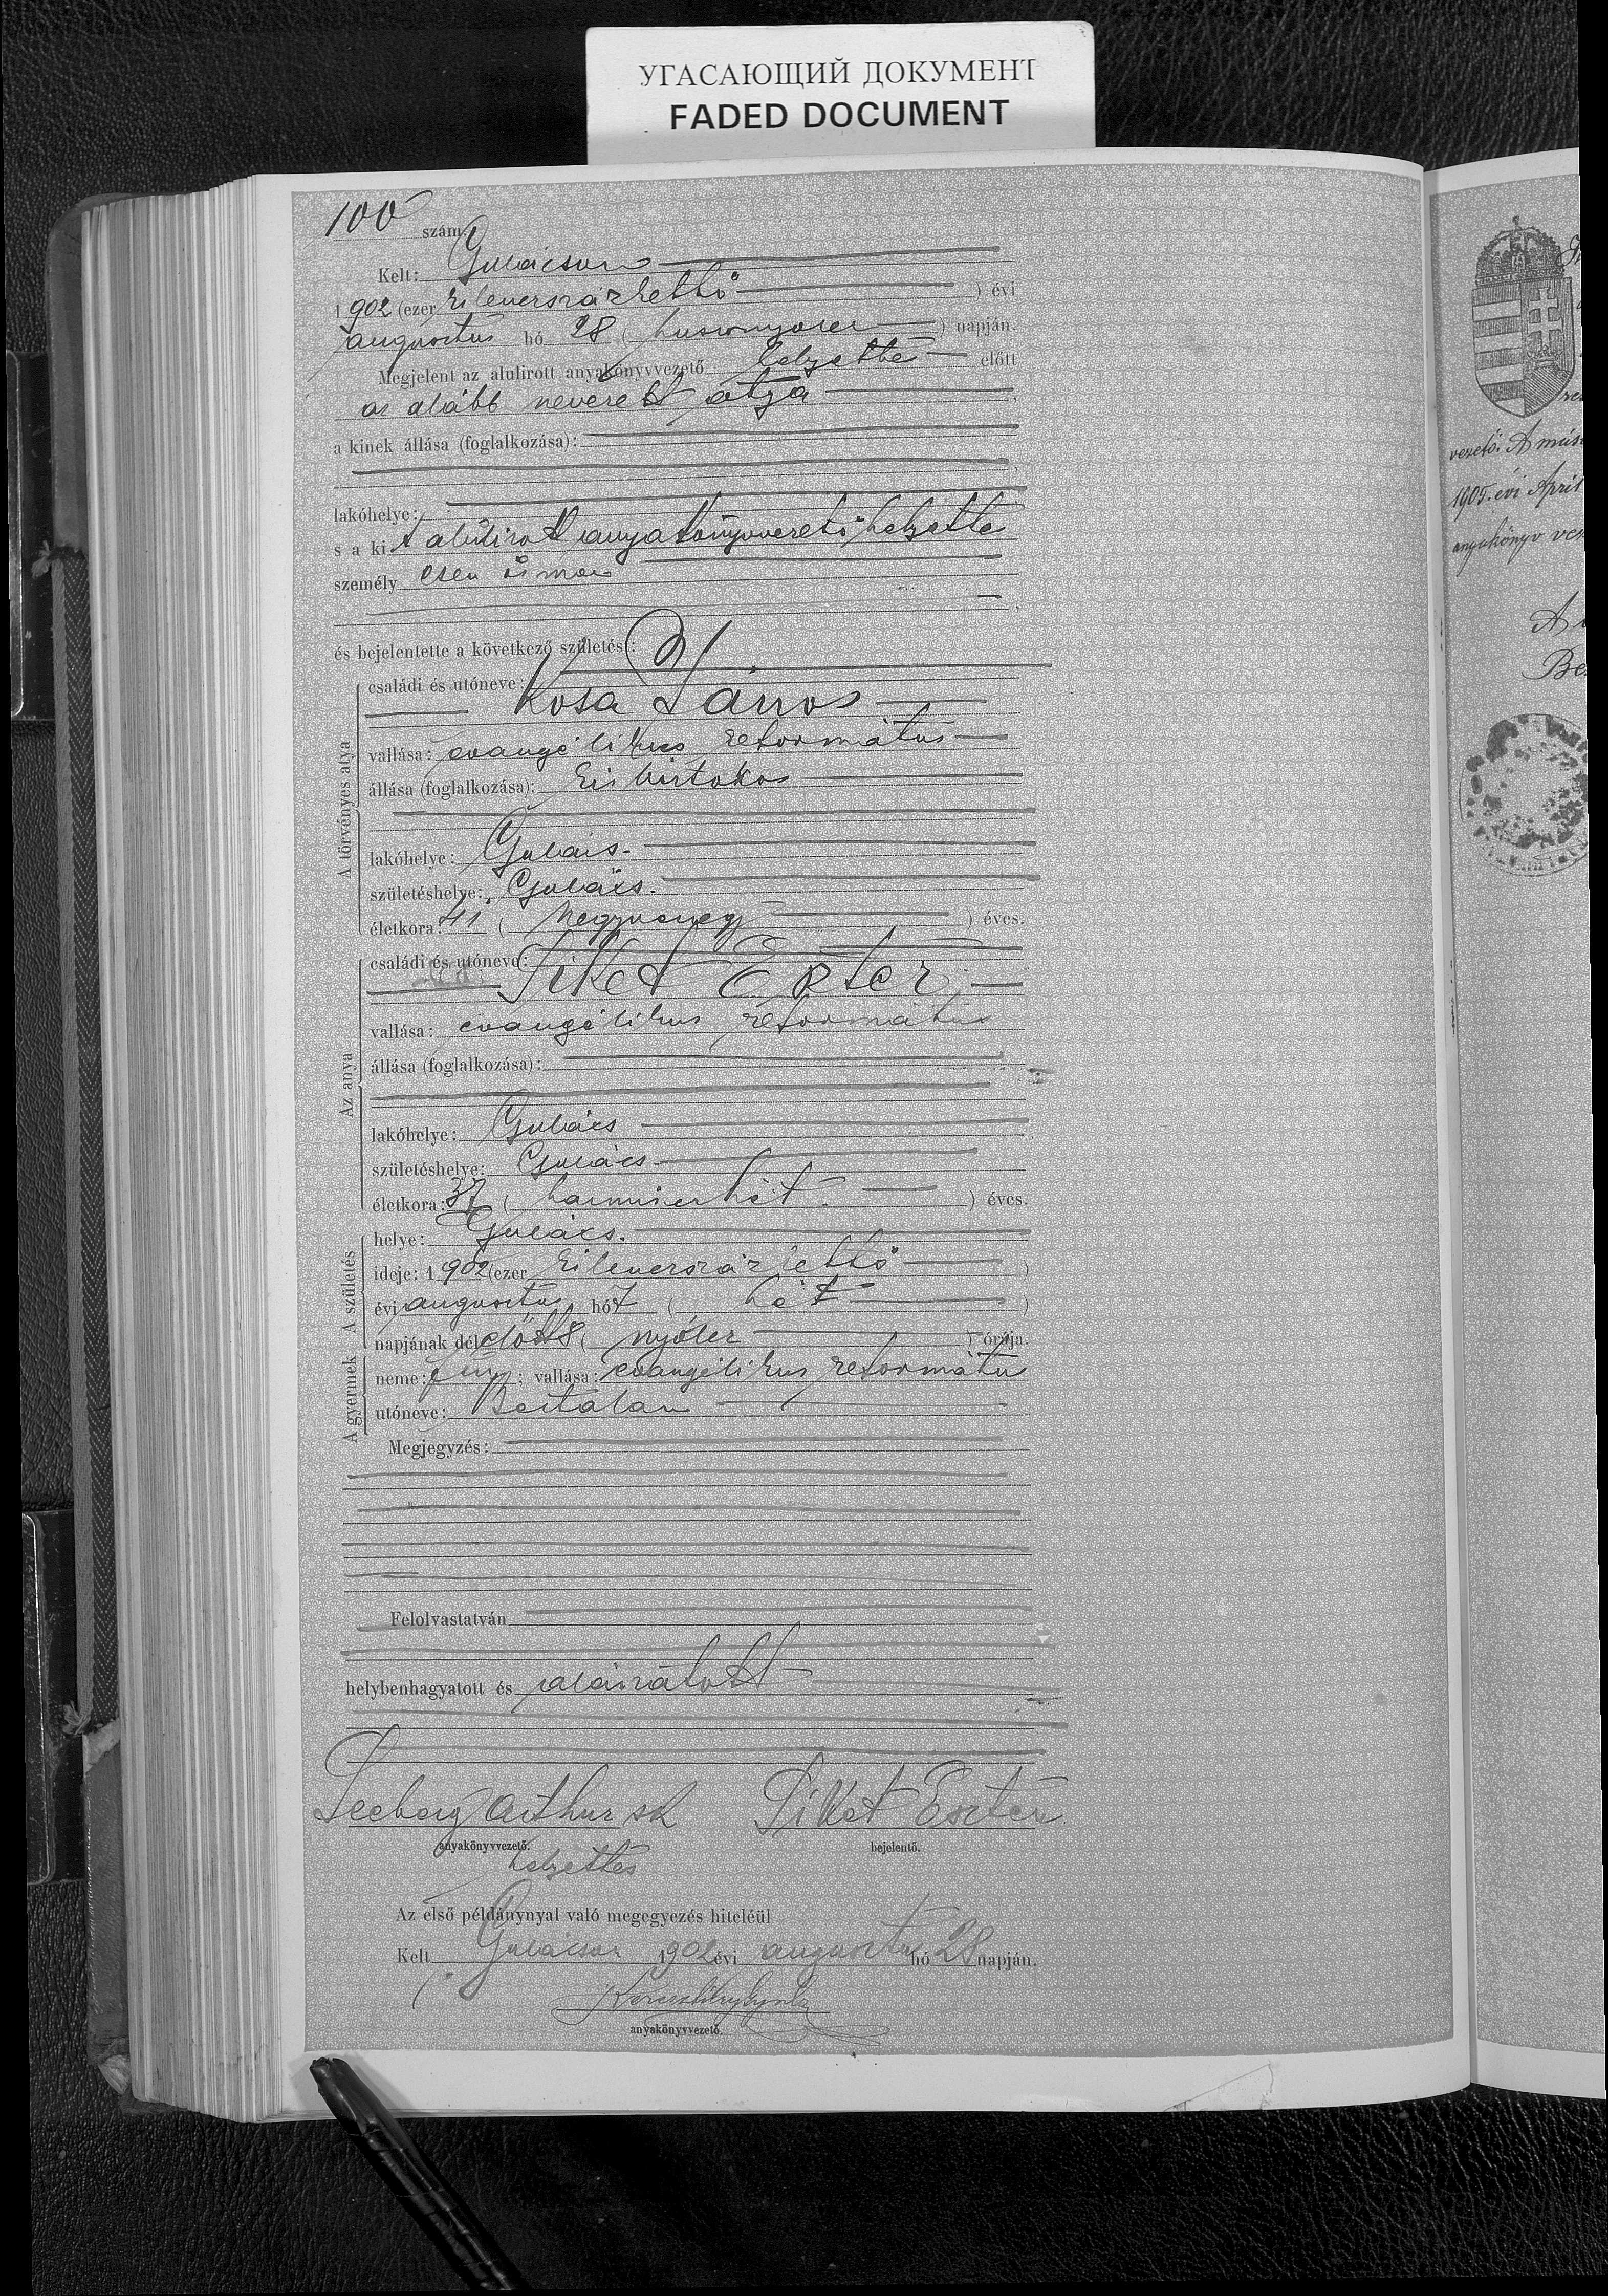 УГАСАЮЩИЙ ДОКУМЕНТ
FADED DOCUMENT
100 szám.
Kelt: Gulácson
1902 (ezer kilencszázkettő) évi
augusztus hó 28 (huszonnyolc) napján.
Megjelent az alulirott anyakönyvvezető helyettes előtt
az alább nevezett
a kinek állása (foglalkozása):
lakóhelye:
s a kit alúlirott anyakönyvvezető helyettes
személyesen ismer
és bejelentette a következő születést:
családi és utóneve:
Kósa János
vallása: evangélikus református
állása (foglalkozása): kis birtokos
lakóhelye: Gulács.
születéshelye: Gulács.
életkora: 41 (negyvenegy) éves.
A törvényes atya
családi és utóneve:
Siket Eszter
vallása: evangélikus református
állása (foglalkozása):
lakóhelye: Gulács
születéshelye: Gulács
életkora: 37 (harminchét) éves.
Az anya
helye: Gulács.
ideje: 1902 (ezer kilencszázkettő)
évi augusztus hó 7 (hét)
napjának délelőtt 8 (nyolc) órája.
A születés
neme: fiú; vallása: evangélikus református
utóneve: Bertalan
A gyermek
Megjegyzés:
Felolvastatván
helybenhagyatott és aláíratott
Seeberg Arthur sk Siket Eszter
anyakönyvvezető. bejelentő.
helyettes
Az első példánynyal való megegyezés hiteléül
Kelt Gulácson 1902 évi augusztus hó 28 napján.
anyakönyvvezető.
vezető: A
1905. évi April
anyakönyv